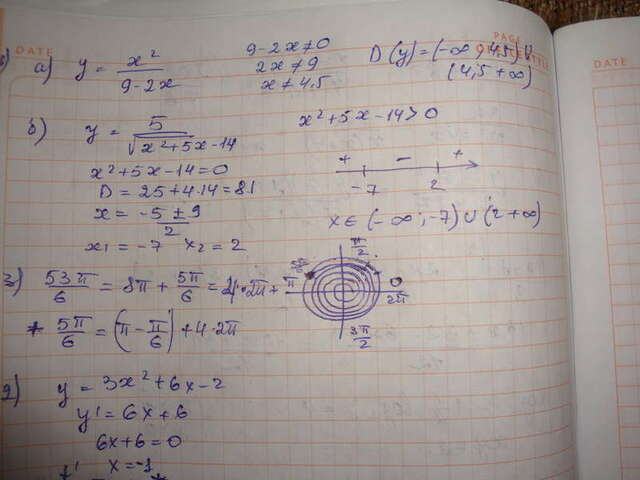 DATE
PAGE
DATE
а) y = x² / (9-2x)
9-2x≠0
2x≠9
x≠4.5
D(y)=(-∞, 4,5) ∪
(4,5 +∞)
б) y = 5 / √(x²+5x-14)
x²+5x-14>0
x²+5x-14=0
D = 25+4·14=81
x = (-5±9)/2
x₁ = -7 x₂ = 2
+ - +
-7 2
x∈(-∞;-7)∪(2+∞)
3) 53π/6 = 8π + 5π/6 = 4·2π +
+ 5π/6 = (π - π/6) + 4·2π
π/2
π
0
2π
3π/2
2) y = 3x²+6x-2
y' = 6x+6
6x+6=0
x=-1